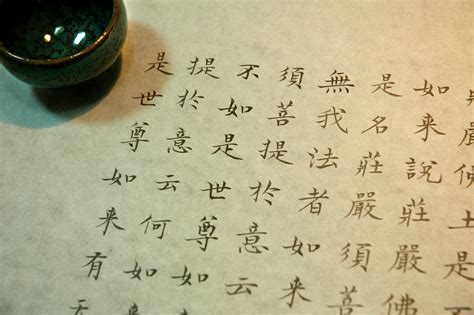 嚴佛土是
如来說莊嚴佛
是名莊嚴須菩
無我法者如来
須菩提於意云
不如是世尊如
提於意云何如
是世尊如来有